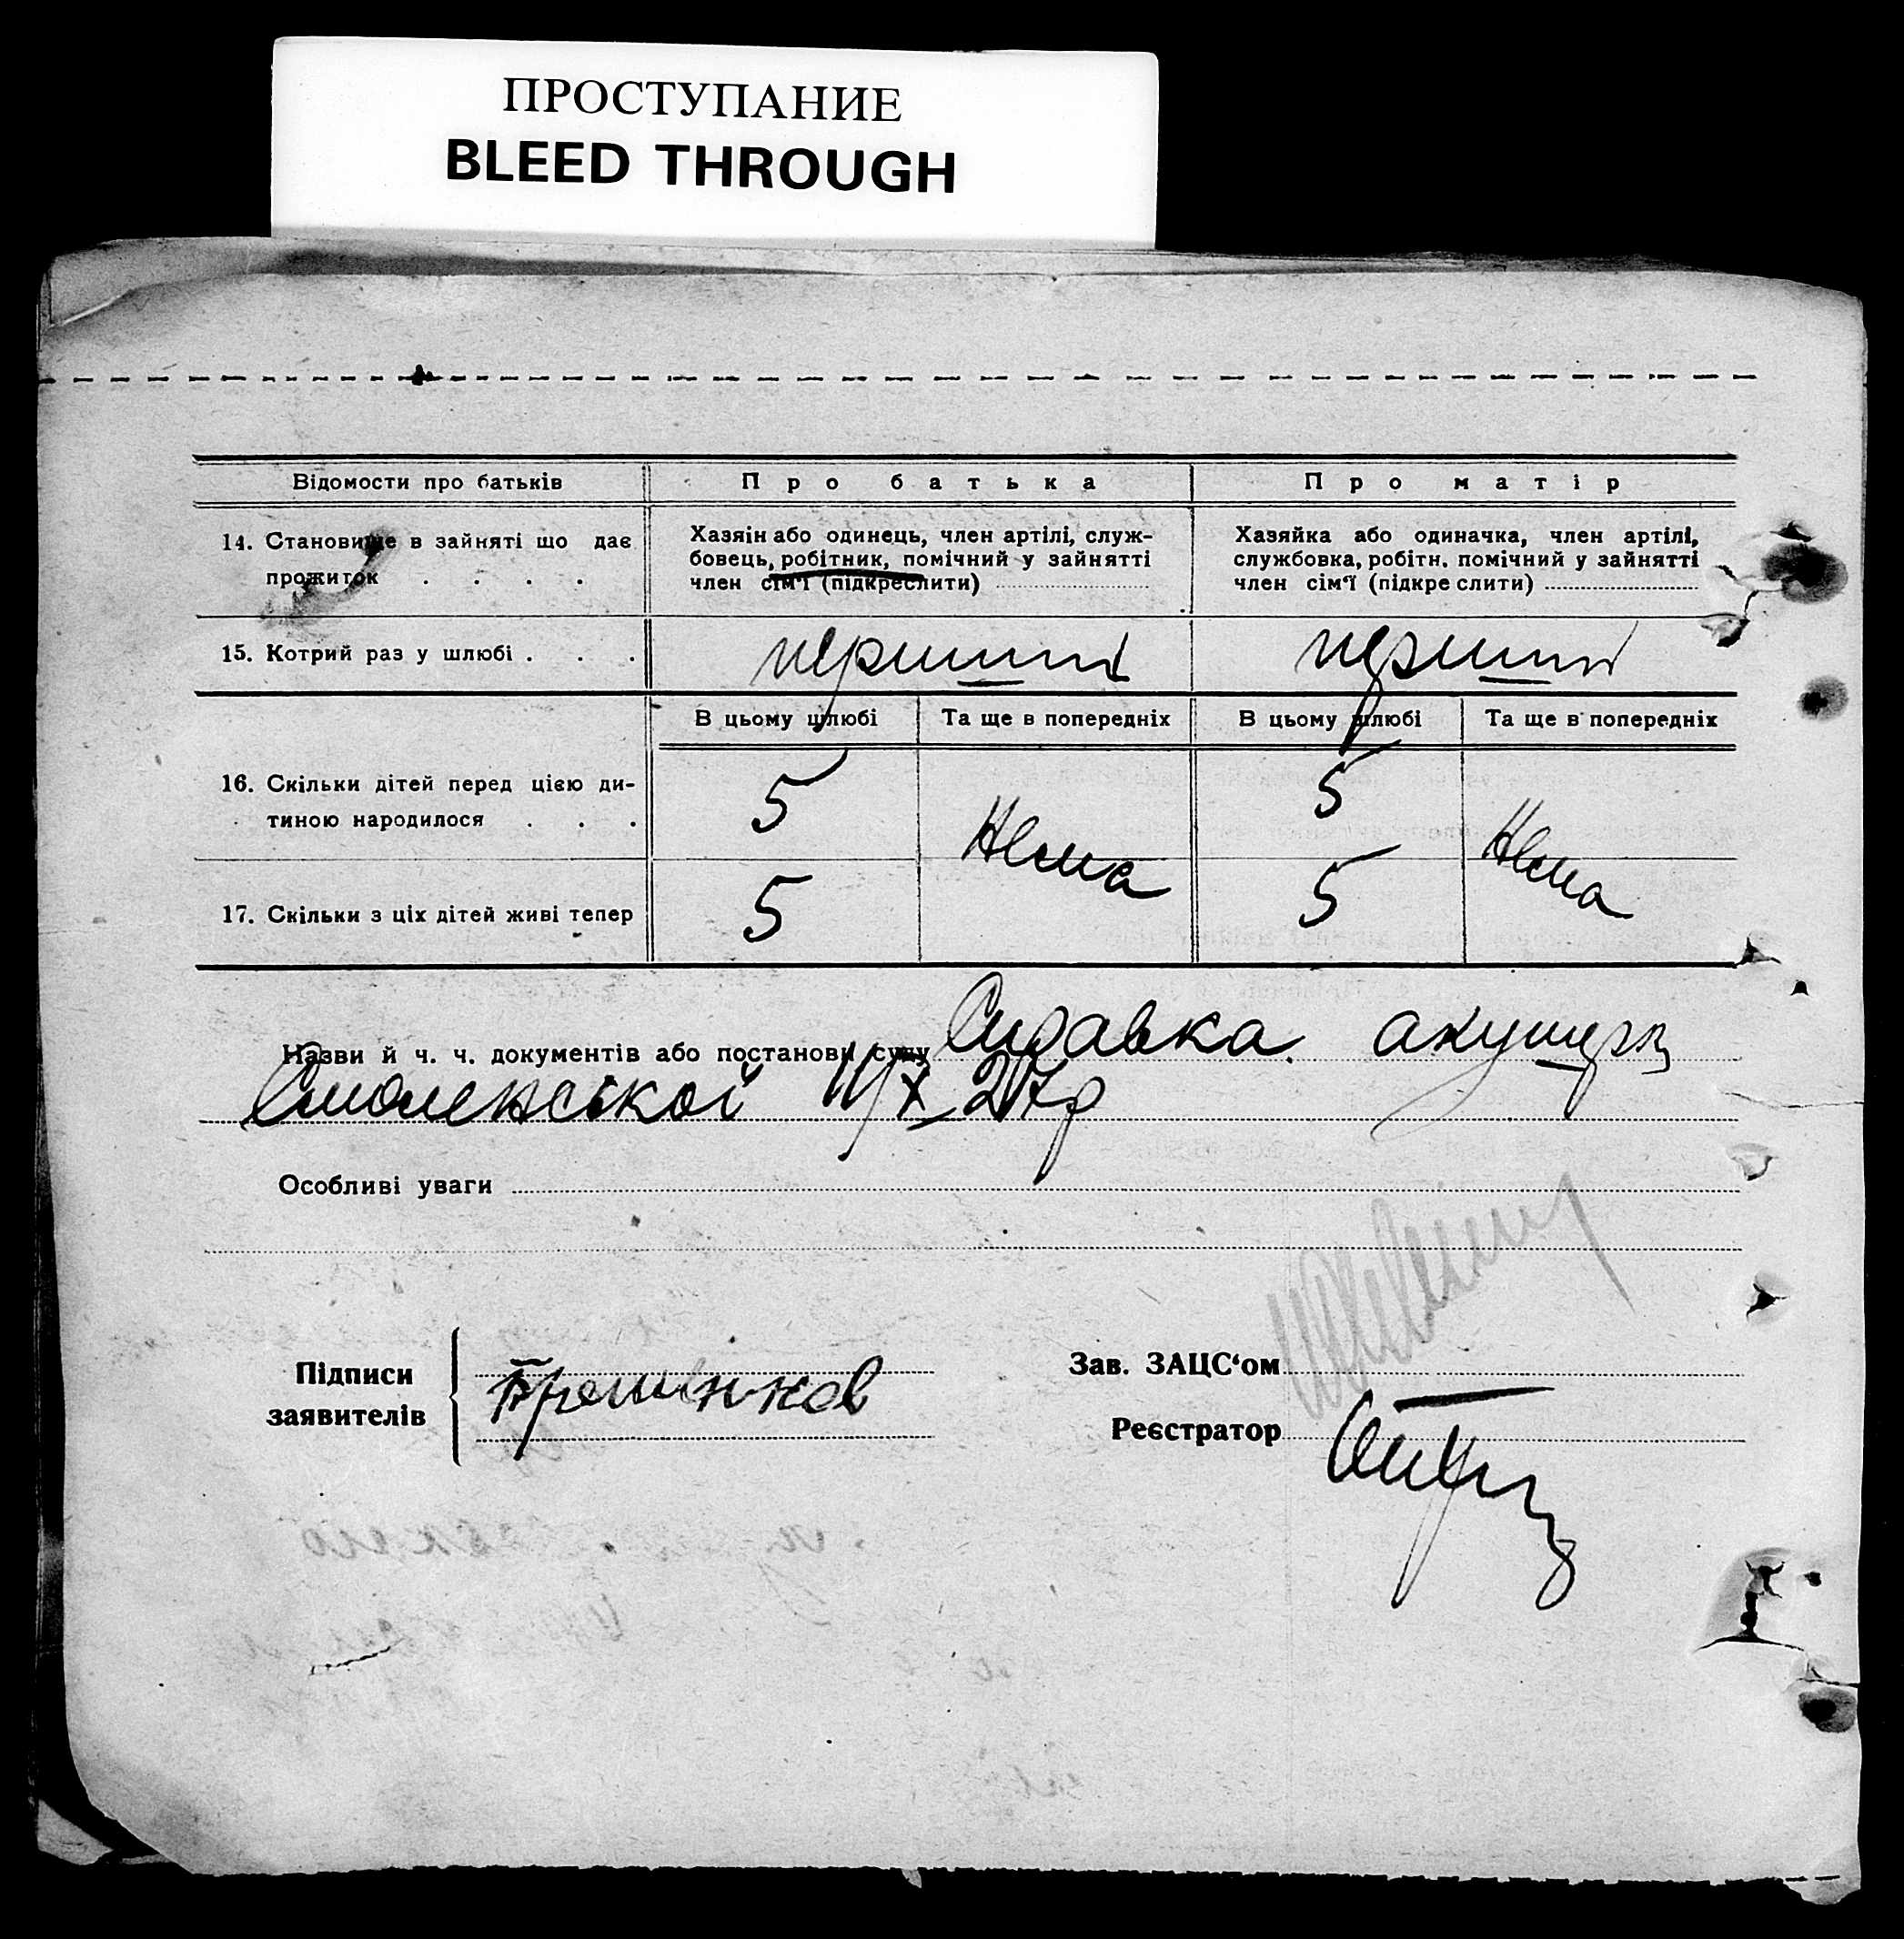 ПРОСТУПАНИЕ
BLEED THROUGH
Відомости про батьків
Про батька
Про матір
14. Становище в зайняті що дає
прожиток . . . .
Хазяін або одинець, член артілі, служ-
бовець, робітник, помічний у зайнятті
член сім'ї (підкреслити)
Хазяйка або одиначка, член артілі,
службовка, робітн. помічний у зайнятті
член сім'ї (підкреслити)
15. Котрий раз у шлюбі . . .
перший
перший
В цьому шлюбі
Та ще в попередніх
В цьому шлюбі
Та ще в попередніх
16. Скільки дітей перед цією ди-
тиною народилося . . .
5
Нема
5
Нема
17. Скільки з ціх дітей живі тепер
5
5
Назви й ч. ч. документів або постанови суду Справка акушерк
Смоленської 11/X 27 р
Особливі уваги
Підписи
заявителів
Зав. ЗАЦС‘ом
Реєстратор